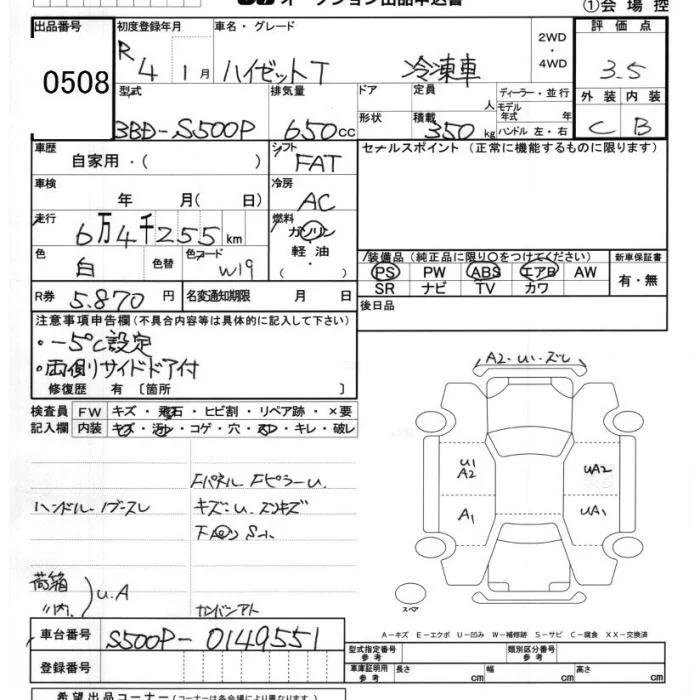 オークション出品申込書
①会場控
出品番号 0508
初度登録年月 R4 1月
車名・グレード ハイゼットT 冷凍車
2WD・4WD
評価点 3.5
外装 内装
C B
型式 3BD-S500P
排気量 650cc
ドア 形状
定員 人
積載 350kg
ディーラー・並行
モデル年式 年
ハンドル 左・右
車歴 自家用・( )
シフト FAT
セールスポイント (正常に機能するものに限ります)
車検 年 月( 日)
冷房 AC
走行 6万4千255km
燃料 ガソリン・軽油・
色 白 色替 色コード W19
装備品 (純正品に限り○をつけてください)
新車保証書
PS PW ABS エアB AW
SR ナビ TV カワ
有・無
R券 5.870円
名変通知期限 月 日
後日品
注意事項申告欄(不具合内容等は具体的に記入して下さい)
・-5℃設定
・両側サイドドア付
修復歴 有 〔箇所 〕
検査員 FW キズ・飛石・ヒビ割・リペア跡・×要
記入欄 内装 キズ・汚レ・コゲ・穴・スレ・キレ・破レ
A2・U1・ズレ
U1
A2
UA2
A1
UA1
Fパネル Fピラー U.
ハンドル・ノブスレ
キズ・U.
荷箱
〃内
U.A
カンバンアト
スペア
A-キズ E-エクボ U-凹み W-補修跡 S-サビ C-腐食 XX-交換済
車台番号 S500P-0149551
登録番号
型式指定番号 参考
類別区分番号 参考
車庫証明用 参考 長さ cm 幅 cm 高さ cm
希望出品コーナー (コーナーは各会場により異なります)